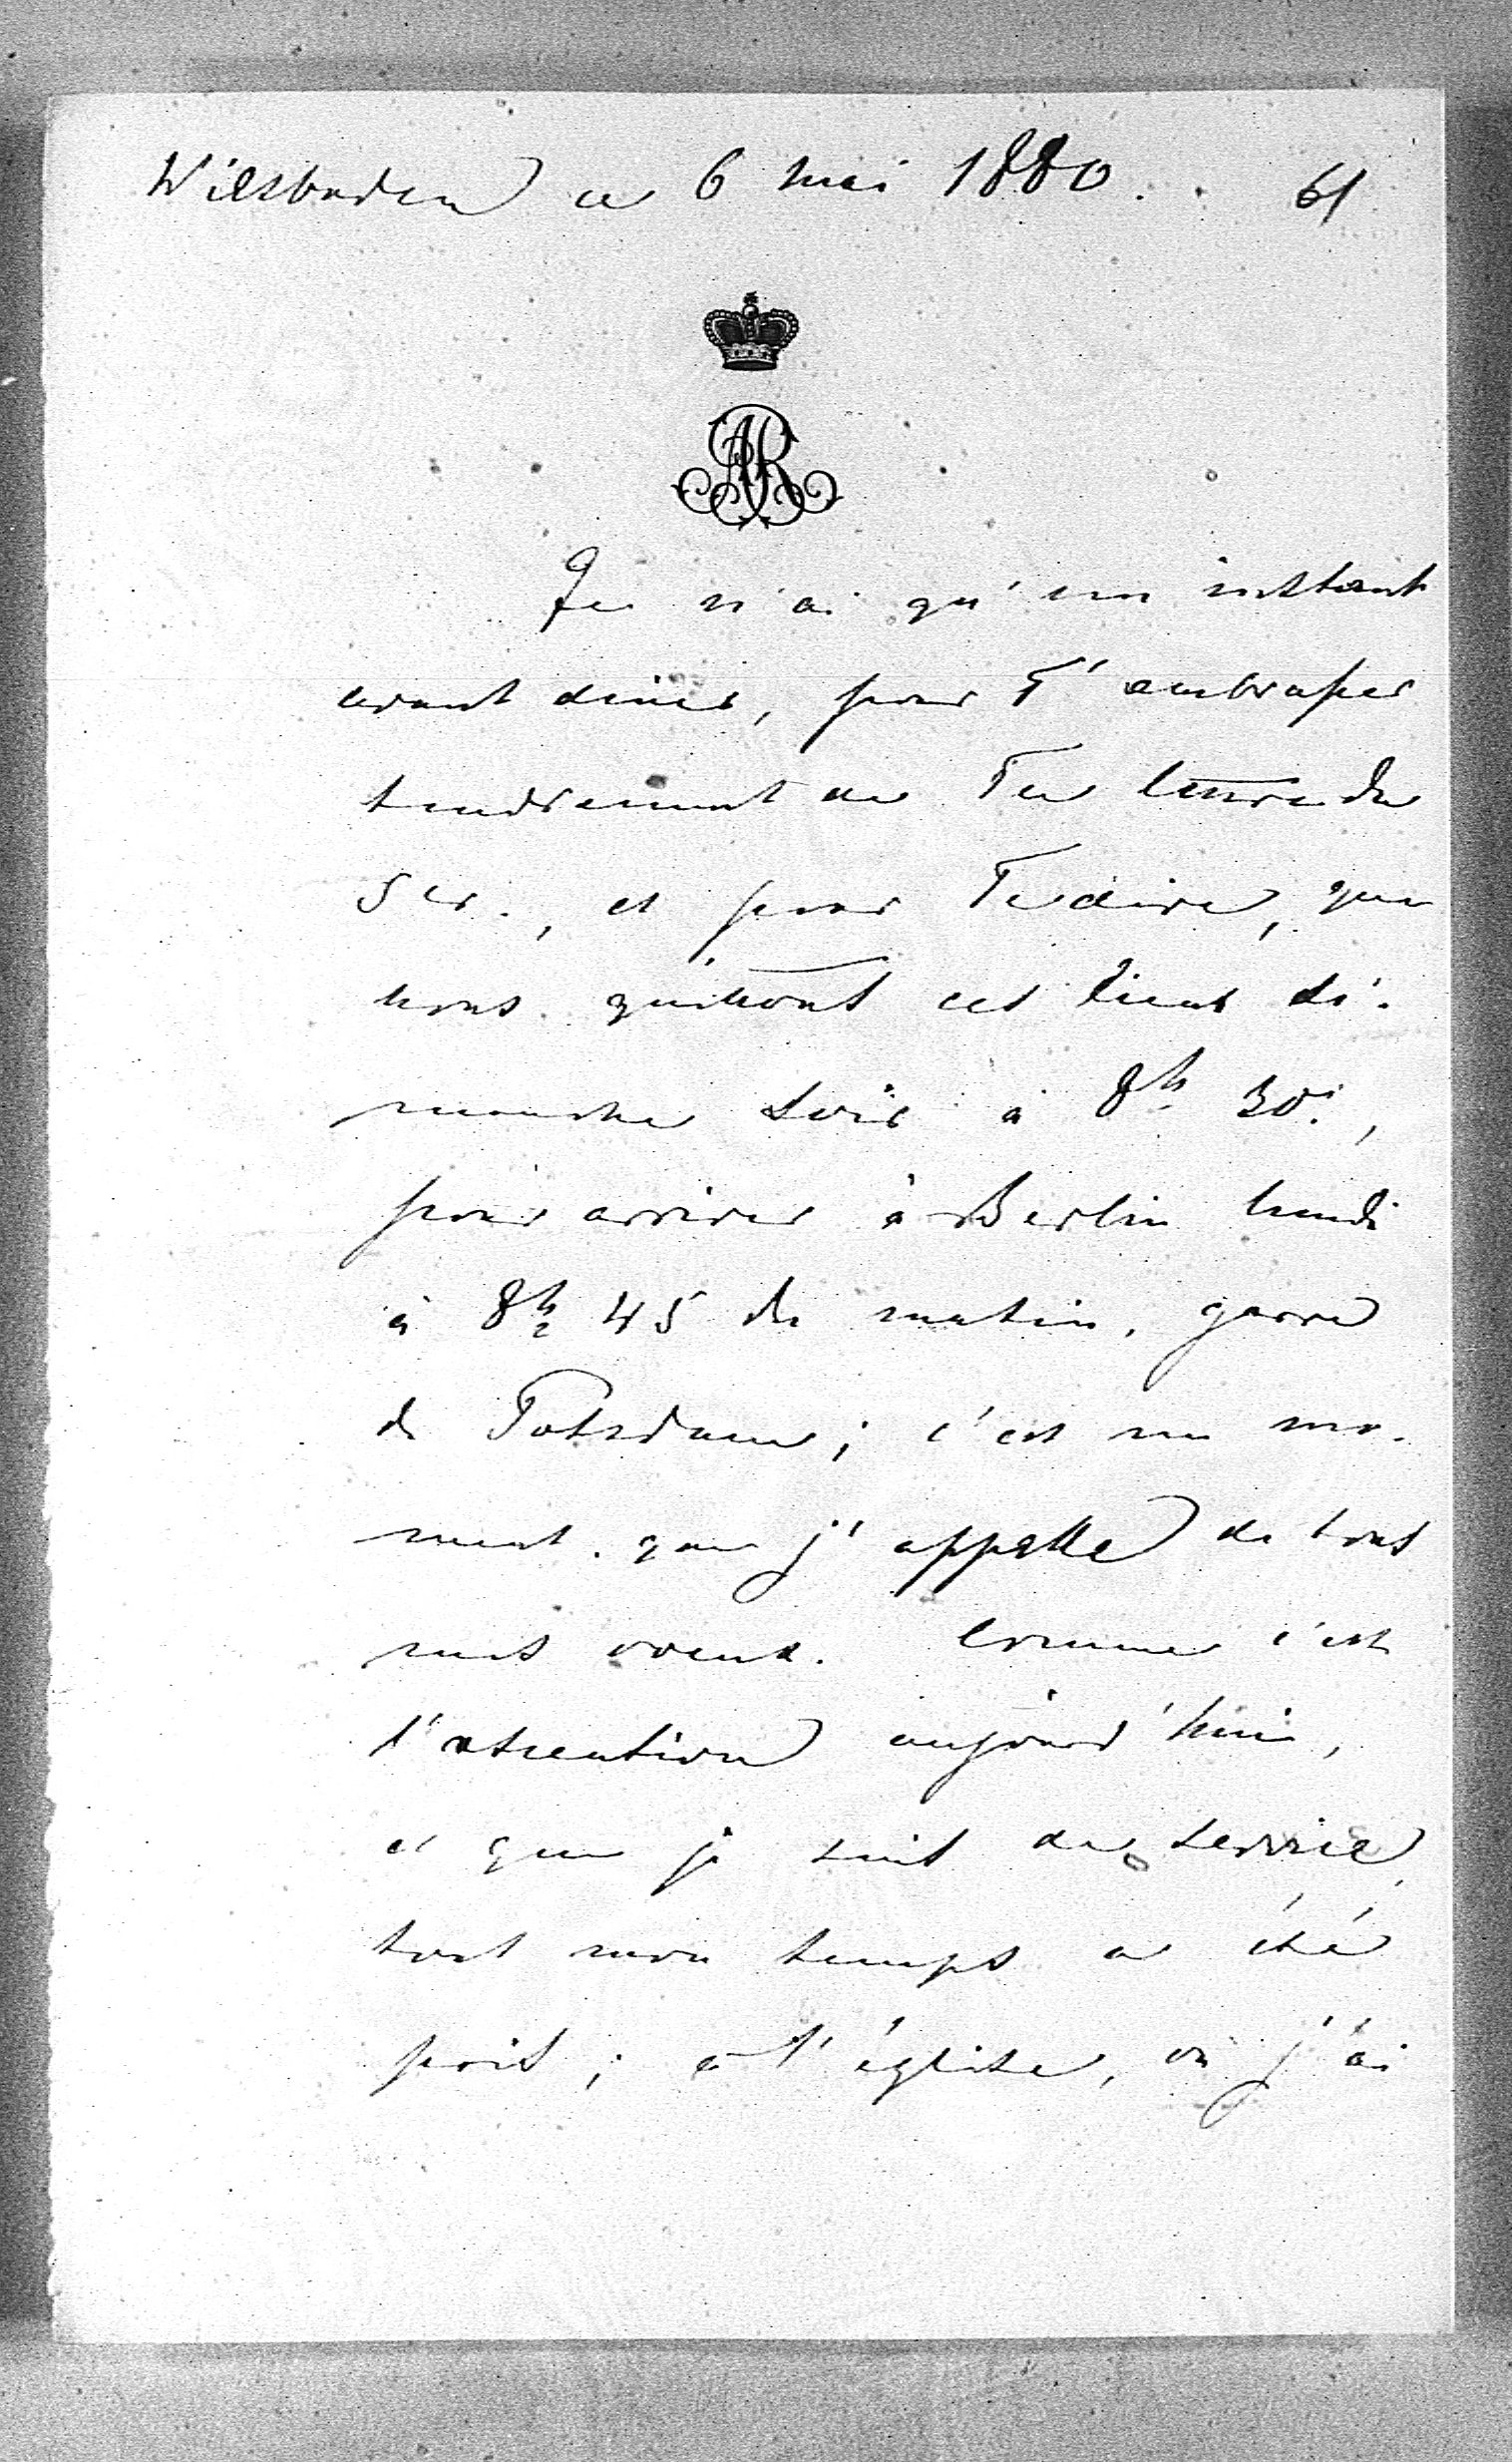 Wiesbaden ce 6 mai 1880. 61
AR
Je n'ai qu'un instant
avant dîner, pour T'embrasser
tendrement de Ta lettre du
5 cr., et pour Te dire, que
nous quittons ces lieux di-
manche soir à 8h 30,
pour arriver à Berlin lundi
à 8h 45 du matin, garre
de Potsdam; c'est un mo-
ment que j'appelle de tous
mes voeux. Comme c'est
l'ascention aujourd'hui,
et que je suis de service,
tout mon temps a été
pris; à l'église, où j'ai